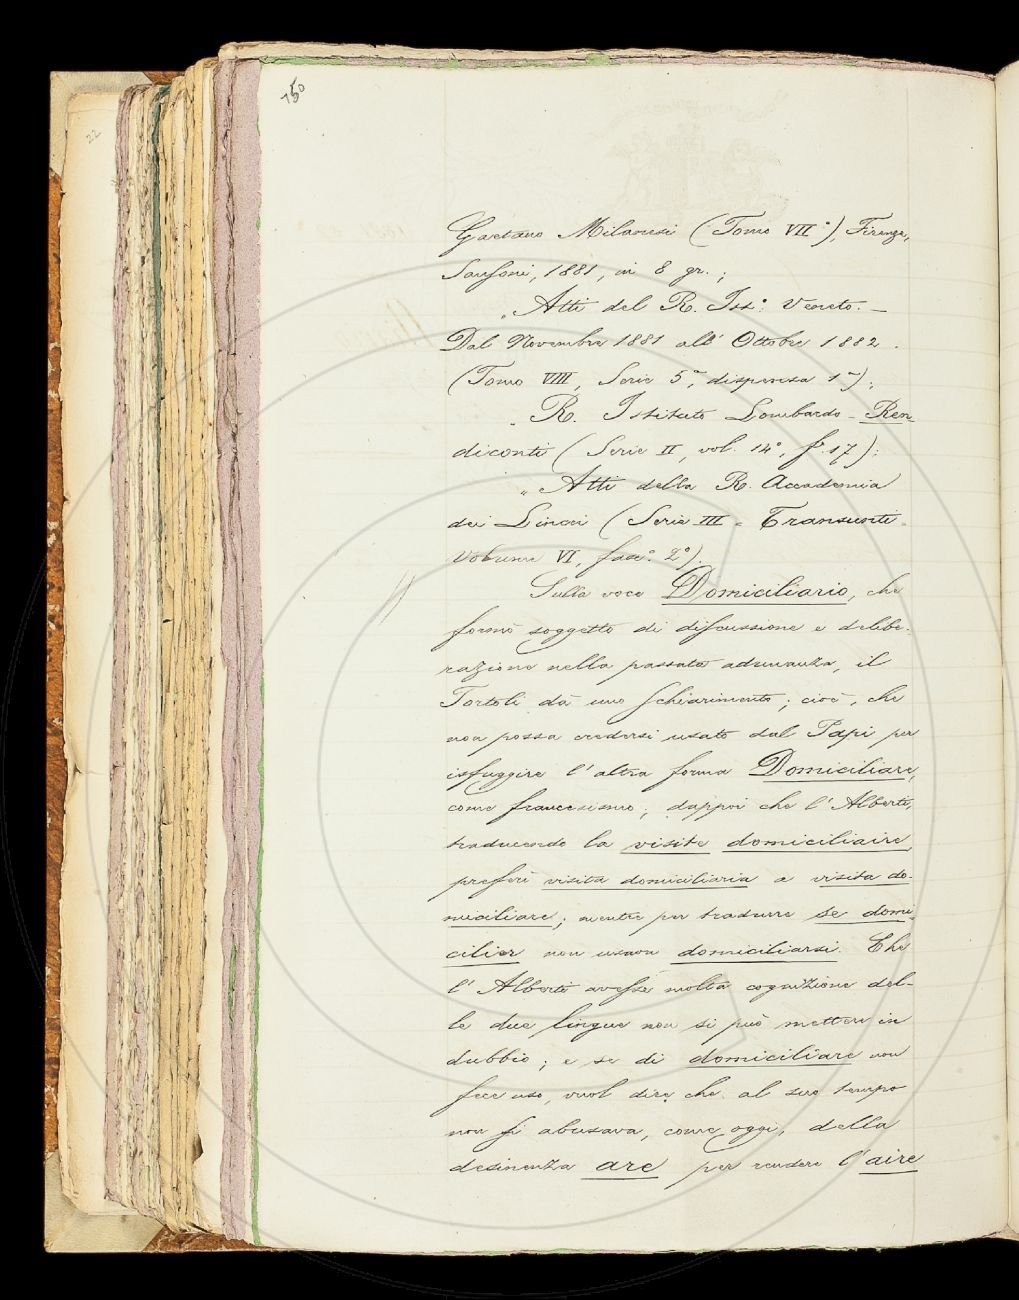 150
22
Gaetano Milanesi (Tomo VII°), Firenze,
Sansoni, 1881, in 8 gr.;
„ Atti del R. Ist.° Veneto. —
Dal Novembre 1881 all' Ottobre 1882.
(Tomo VIII, Serie 5ª, dispensa 1ª);
„ R. Istituto Lombardo - Ren-
diconti (Serie II, vol. 14°, f. 17);
„ Atti della R. Accademia
dei Lincei (Serie III = Transunti -
Volume VI, fasc.° 2°).
Sulla voce Domiciliario, che
formò soggetto di discussione e delibe-
razione nella passata adunanza, il
Tortoli dà uno schiarimento; cioè, che
non possa credersi usato dal Papi per
isfuggire l'altra forma Domiciliare,
come francesismo; dappoi che l'Alberti,
traducendo la visite domiciliaire,
preferì visita domiciliaria a visita do-
miciliare; mentre per tradurre se domi-
cilier non usava domiciliarsi. Che
l'Alberti avesse molta cognizione del-
le due lingue non si può mettere in
dubbio; e se di domiciliare non
fece uso, vuol dire che al suo tempo
non si abusava, come oggi, della
desinenza are per rendere l'aire